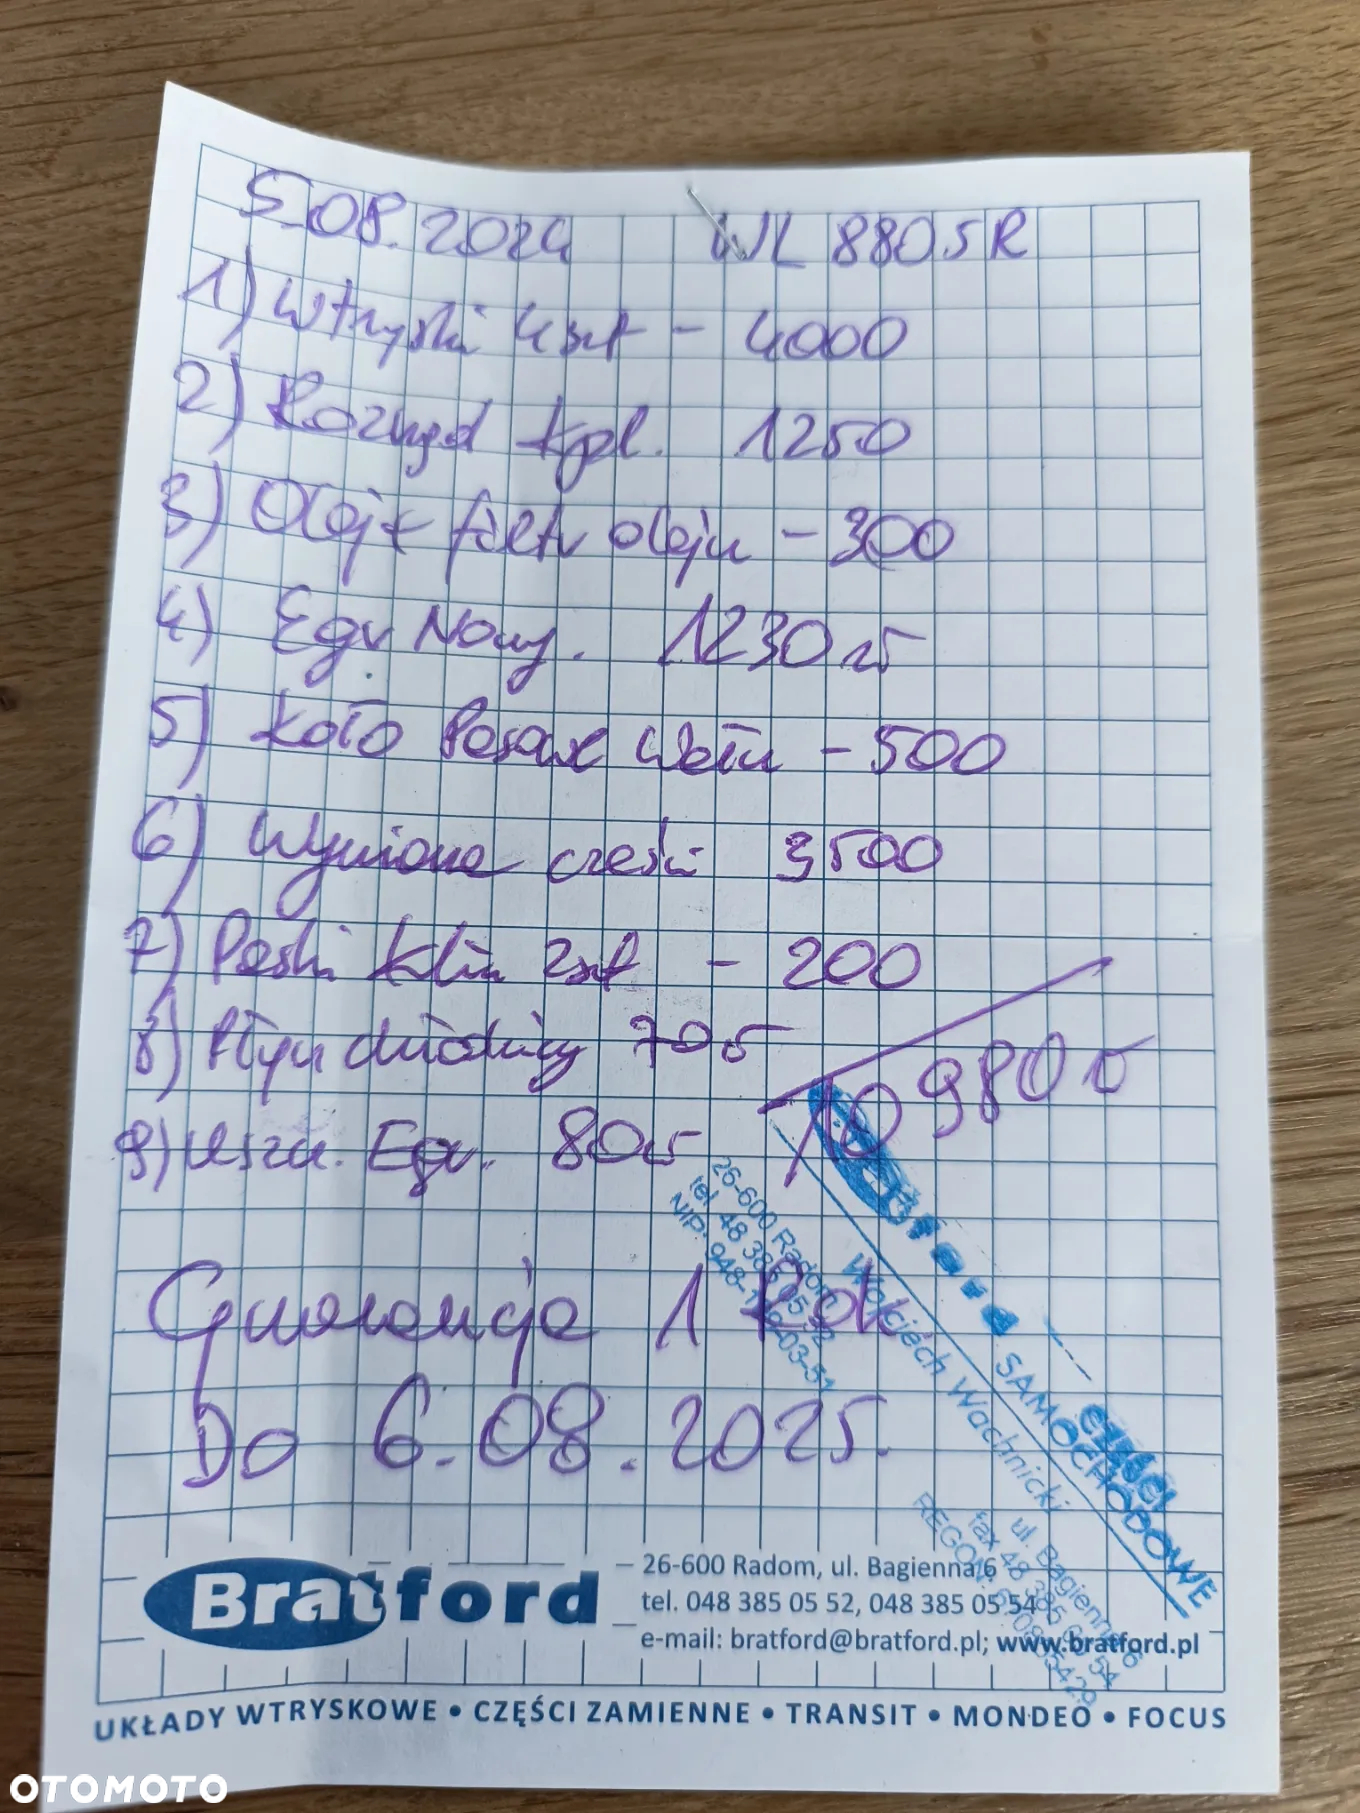 5.08.2024 WL 8805R
1) Wtryski 4szt - 4000
2) Rozrząd kpl. 1250
3) Olej + filtr oleju - 300
4) Egr Nowy. 1230 zł
5) Koło Pasowe Wału - 500
6) Wymiana części 3500
7) Paski Klin 2szt - 200
8) Płyn chłodniczy 70 zł
9) Uszcz. Egr. 80 zł
10980 zł
Gwarancja 1 Rok
Do 6.08.2025.
SAMOCHODOWE
Wojciech Wachnicki
26-600 Radom ul. Bagienna 6
Bratford
26-600 Radom, ul. Bagienna 6
tel. 048 385 05 52, 048 385 05 54
e-mail: bratford@bratford.pl; www.bratford.pl
UKŁADY WTRYSKOWE • CZĘŚCI ZAMIENNE • TRANSIT • MONDEO • FOCUS
OTOMOTO